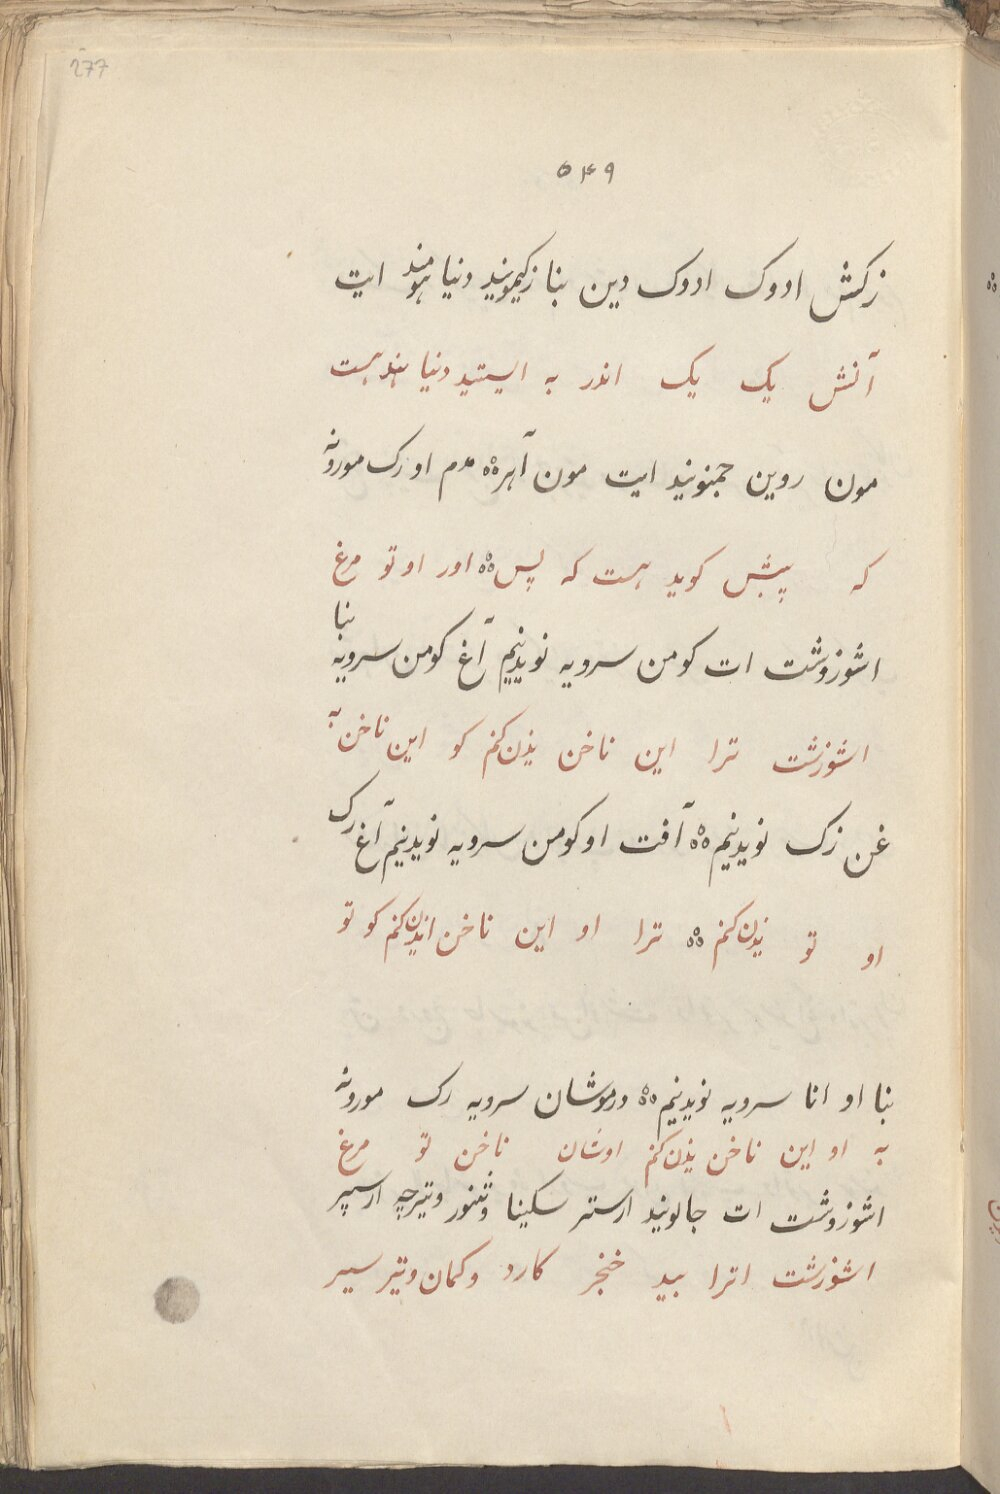 277
۵۴۹
زکش ادوک ادوک دین بنا زکیموнید دنیا هومند ایت
آنش یک یک اندر به ایستید دنیا هند هست
مون روین جمنونید ایت مون آهر مدم او رک مورونه
که پیش کوید هست که پس اور او تو مرغ
اشوزوشت ات کومن سرویه نویدنیم آغ کومن سرویه بنا
اشوزشت ترا این ناخن یذن کنم کو این ناخن به
غن زک نویدنیم آفت او کومن سرویه نویدنیم آغ رک
او تو یذن کنم ترا او این ناخن اندن کنم کو تو
بنا او انا سرویه نویدنیم ورموشان سرویه رک مورونه
به او این ناخن یذن کنم اوشان ناخن تو مرغ
اشوزوشت ات جالونید ارستر سکینا وثنور وتیرچه ارسپر
اشوزشت اترا بید خنجر کارد وکمان وتیر سپر